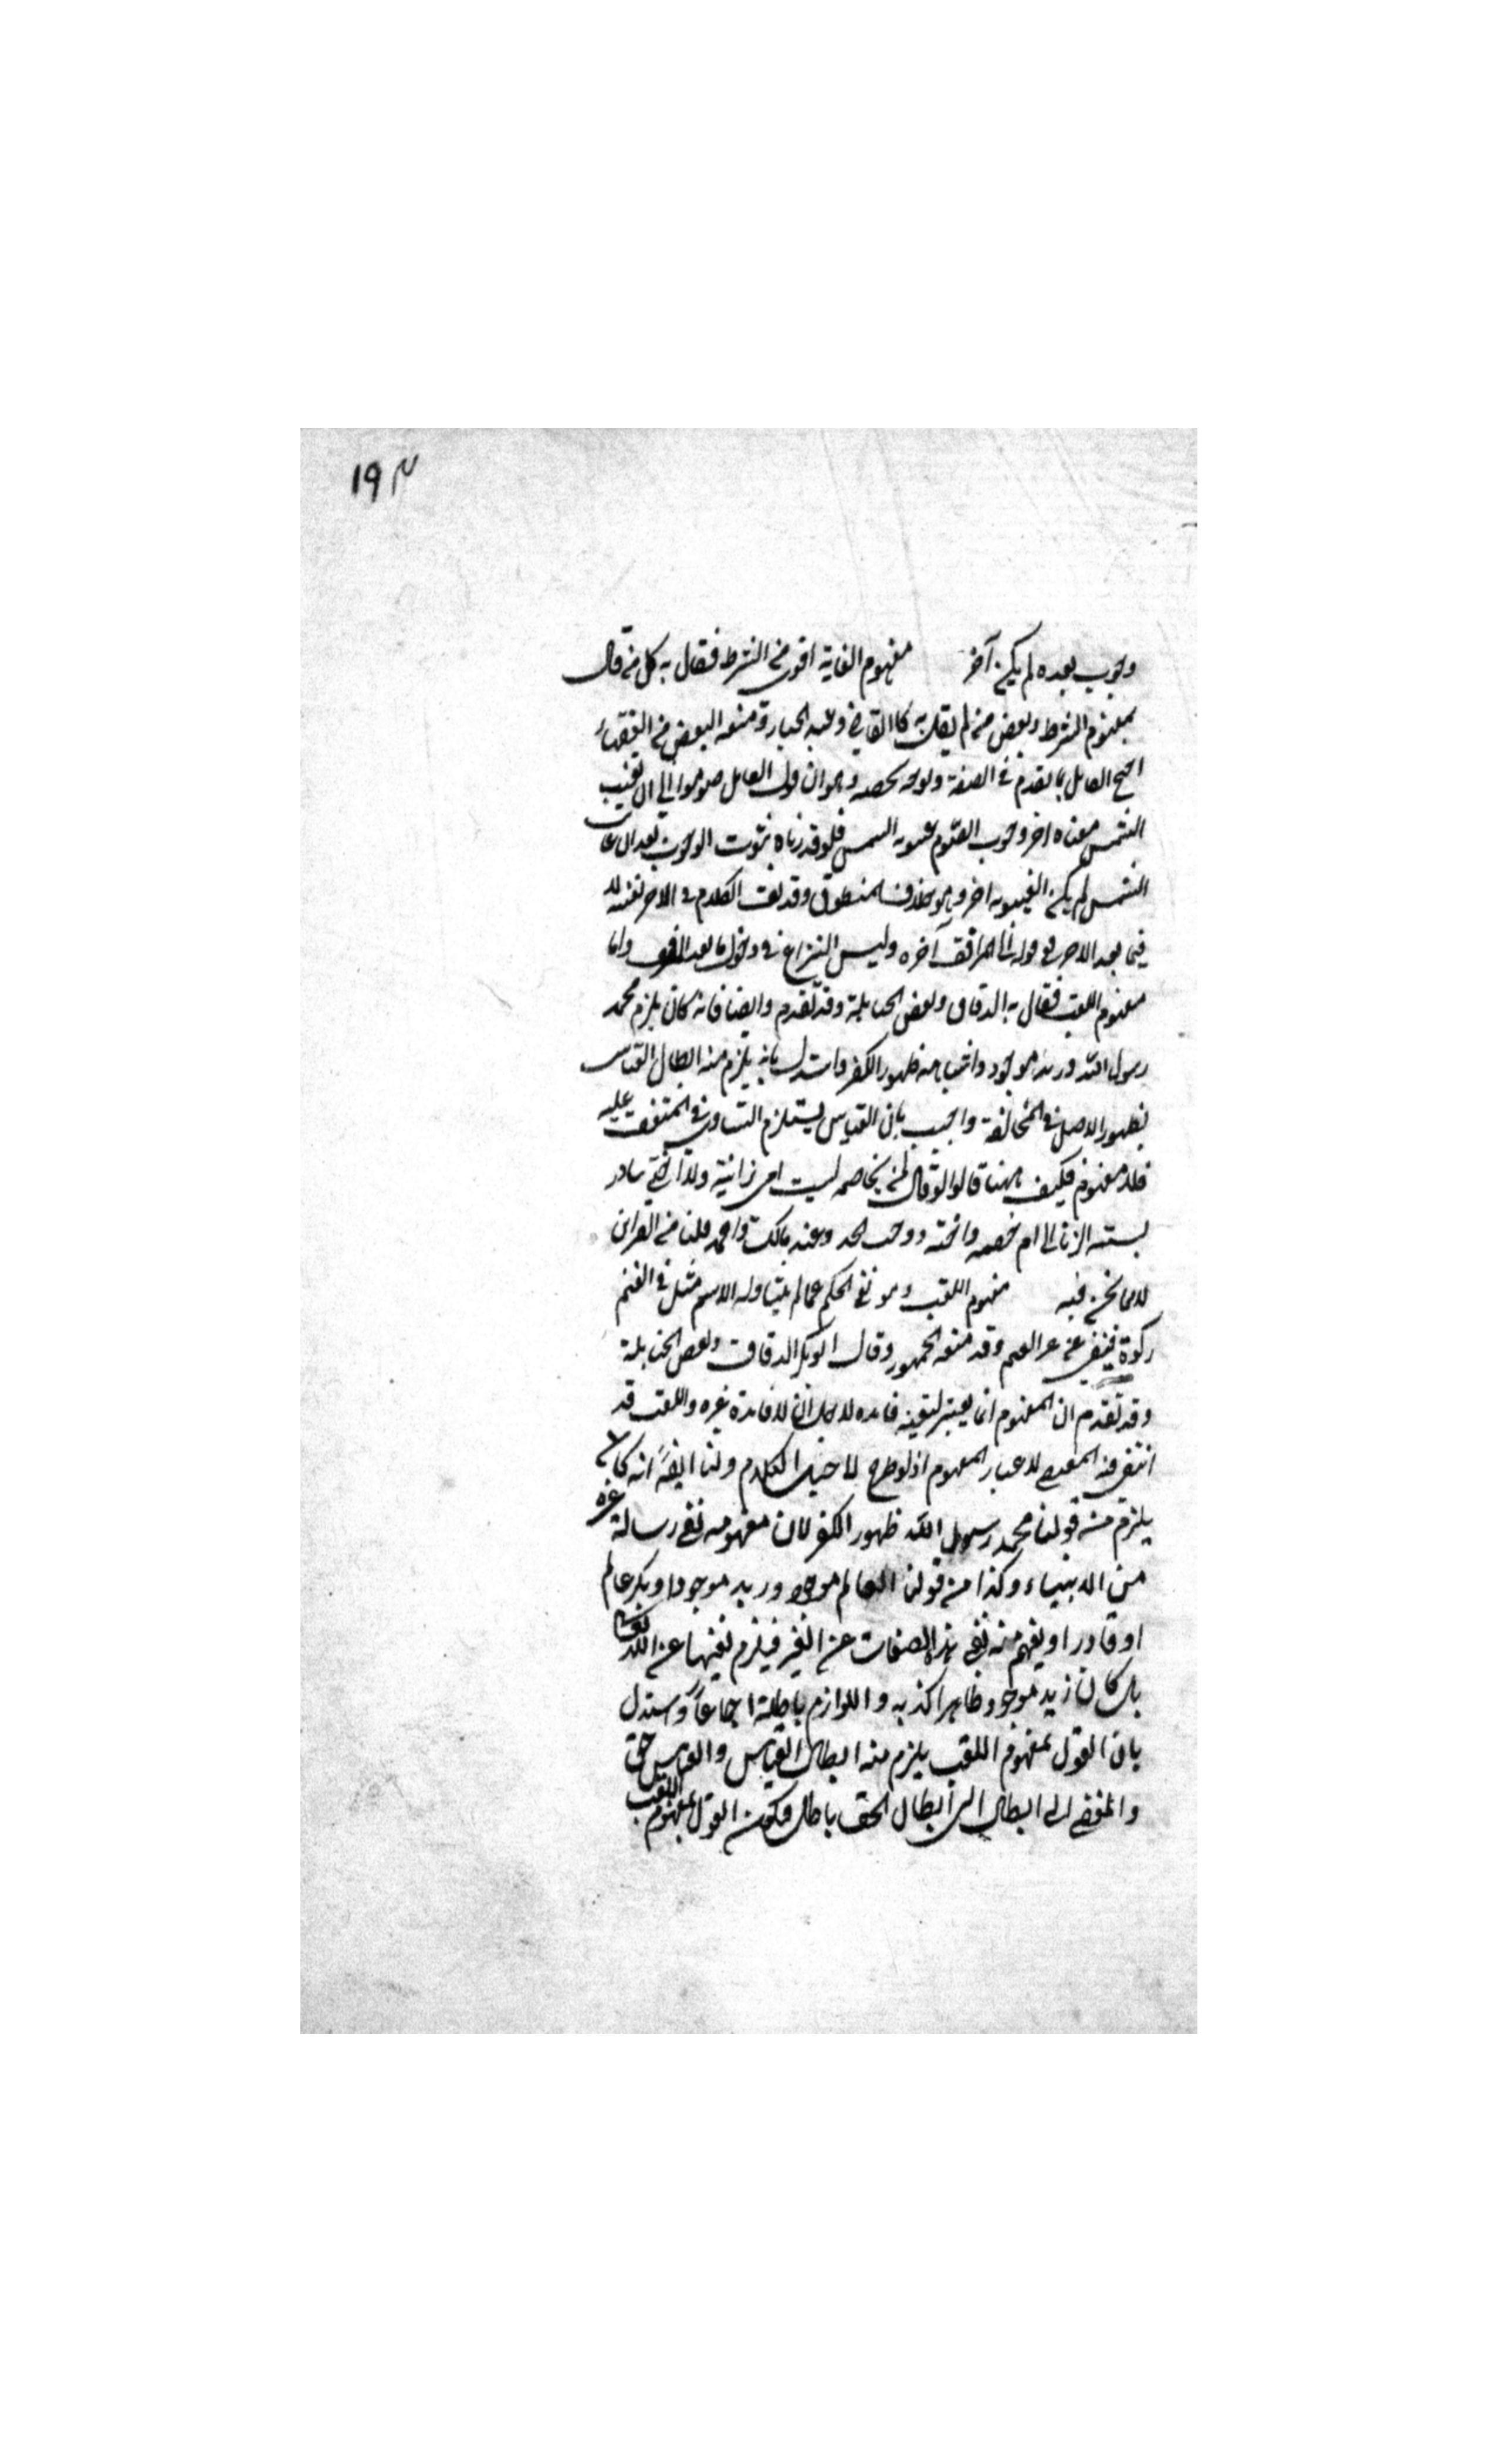 ١٩٣
وجوب بعده لم يكن آخر مفهوم الغاية اقوى من الشرط فقال به كل من قال
بمفهوم الشرط وبعض من لم يقل به كالقاضي وعبد الجبار ومنعه البعض من الفقهاء
احتج القائل بما تقدم في الصفة وبوجه يخصه وهو ان قول القائل صوموا الى ان تغيب
الشمس معناه اخر وجوب الصوم غيبوبة الشمس فلو قدرنا ثبوت الوجوب بعد ان غابت
الشمس لم يكن الغيبوبة اخر وهو خلاف المنطوق وقد الكلام في الاخر نفسه لا
فيما بعد الاخر ففي قوله الى المرافق آخره وليس النزاع في دخول ما بعد المرافق واما
مفهوم اللقب فقال به الدقاق وبعض الحنابلة وقد تقدم وايضا فانه كان يلزم محمد
رسول الله وزيد موجود واشباهه ظهور الكفر واستدل بانه يلزم منه ابطال القياس
لظهور الاصل في المخالفة واجيب بان القياس يستلزم التساوي في المتفق عليه
فلا مفهوم فكيف ههنا قالوا لو قال لمن يخاصمه ليست امي زانية ولا اختي تبادر
نسبته الزنا الى ام خصمه واخته ووجب الحد وعند مالك واحمد قلنا من القرائن
لا مما نحن فيه مفهوم اللقب وهو نفي الحكم عما لم يتناوله الاسم مثل في الغنم
زكوة فينفي عن غير الغنم وقد منعه الجمهور وقال ابو بكر الدقاق وبعض الحنابلة
وقد تقدم ان المفهوم انما يعتبر لتعينه فائدة لا فائدة غيره واللقب قد
انتفى فيه المقتضى لاعتبار المفهوم اذ لو طرح لاختل الكلام ولنا ايضاً انه كان
يلزم من قولنا محمد رسول الله ظهور الكفر لان مفهومه نفي رسالة غيره
من الانبياء وكذا من قولنا العالم موجود وزيد موجود او بكر عالم
او قادر او يفهم منه نفي هذه الصفات عن الغير فيلزم نفيها عن الله تعالى
بل كان زيد موجود ظاهرا كذبه واللوازم باطلة اجماعاً واستدل
بان القول بمفهوم اللقب يلزم منه ابطال القياس والقياس حق
والمفضي الى ابطال الى ابطال الحق باطل فيكون القول بمفهوم اللقب